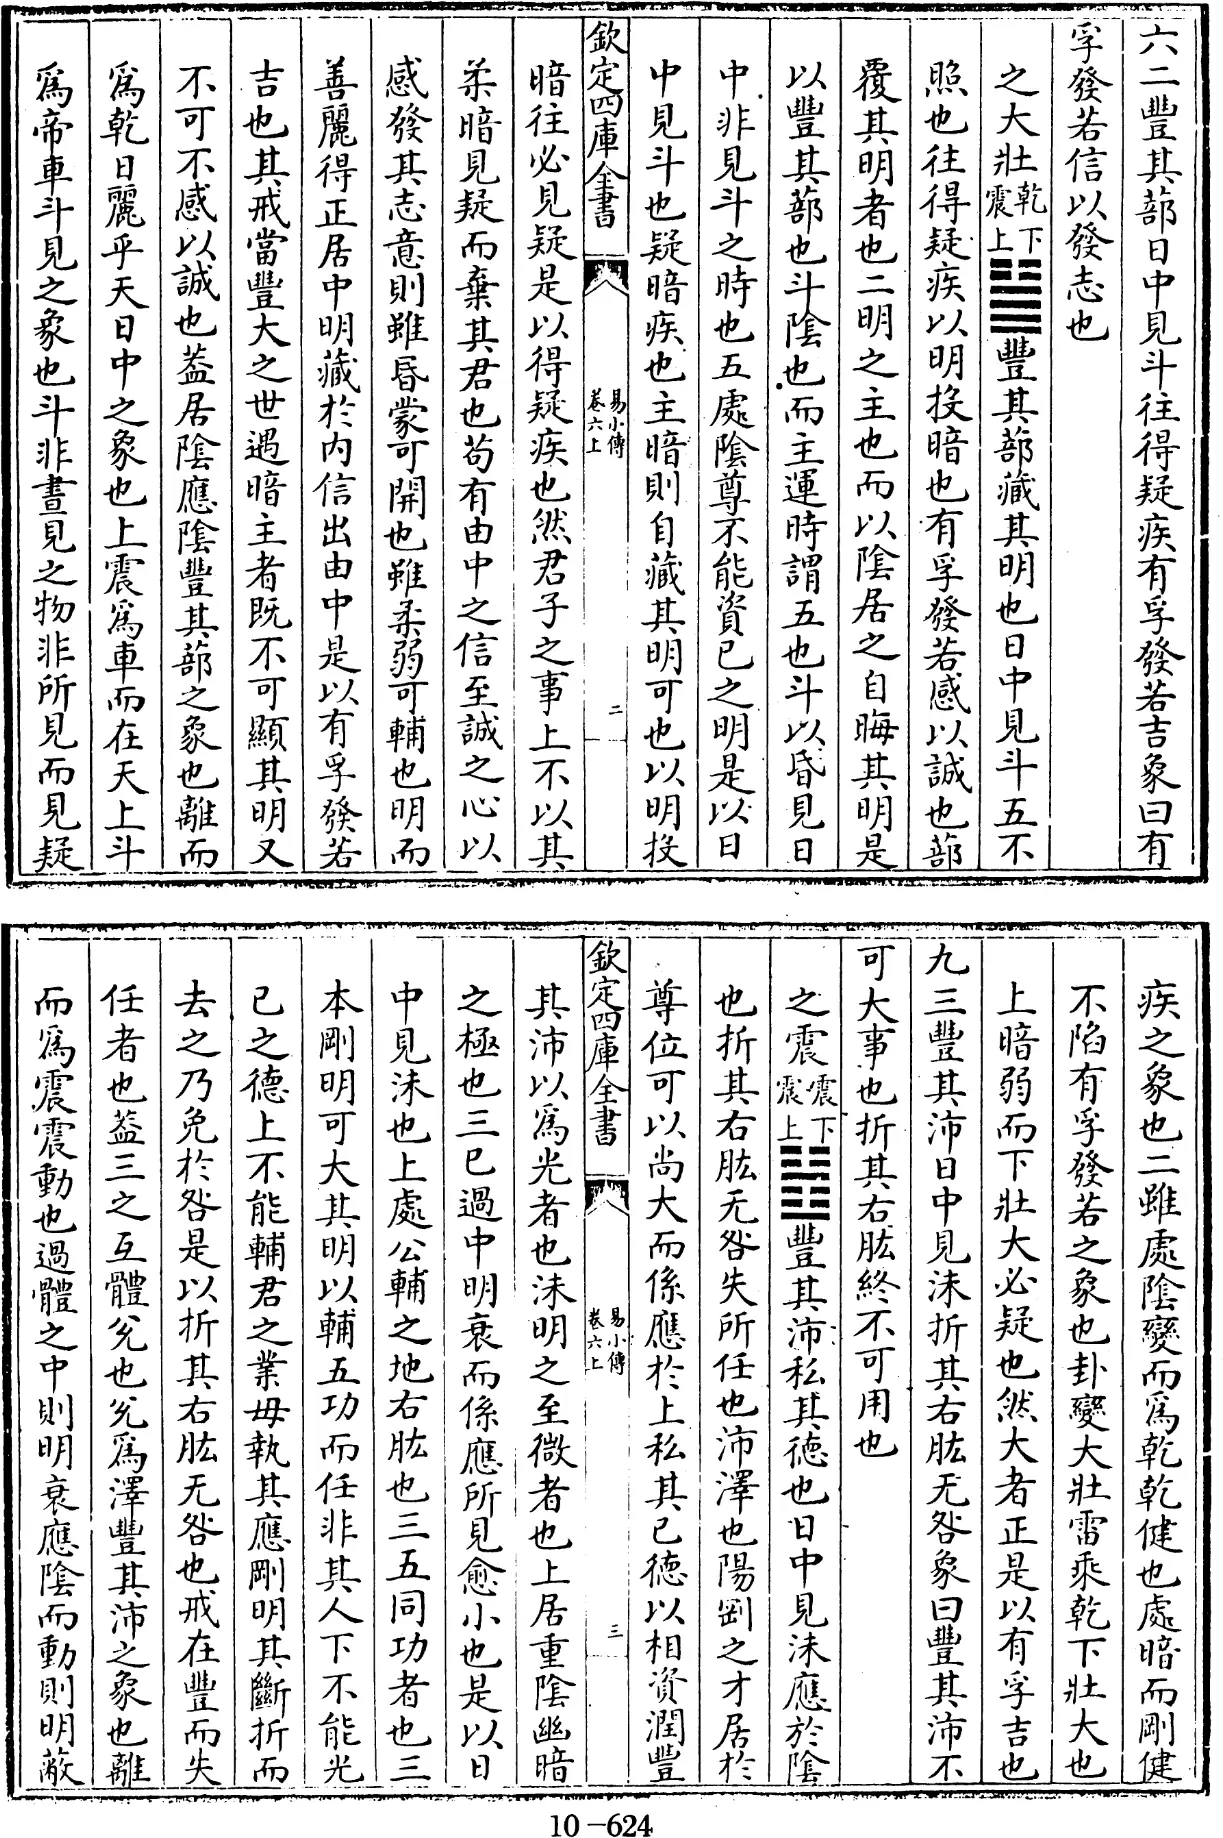 六二豐其蔀日中見斗往得疑疾有孚發若吉象曰有
孚發若信以發志也
之大壯乾下震上䷡豐其蔀藏其明也日中見斗五不
照也往得疑疾以明投暗也有孚發若感以誠也蔀
覆其明者也二明之主也而以陰居之自晦其明是
以豐其蔀也斗陰也而主運時謂五也斗以昏見日
中非見斗之時也五處陰尊不能資已之明是以日
中見斗也疑暗疾也主暗則自藏其明可也以明投
欽定四庫全書 易小傳卷六上 二
暗往必見疑是以得疑疾也然君子之事上不以其
柔暗見疑而棄其君也苟有由中之信至誠之心以
感發其志意則雖昏蒙可開也雖柔弱可輔也明而
善麗得正居中明藏於内信出由中是以有孚發若
吉也其戒當豐大之世遇暗主者既不可顯其明又
不可不感以誠也葢居陰應陰豐其蔀之象也離而
爲乾日麗乎天日中之象也上震爲車而在天上斗
爲帝車斗見之象也斗非晝見之物非所見而見疑
疾之象也二雖處陰變而爲乾乾健也處暗而剛健
不陷有孚發若之象也卦變大壯雷乘乾下壯大也
上暗弱而下壯大必疑也然大者正是以有孚吉也
九三豐其沛日中見沬折其右肱无咎象曰豐其沛不
可大事也折其右肱終不可用也
之震震下震上䷲豐其沛私其德也日中見沬應於陰
也折其右肱无咎失所任也沛澤也陽剛之才居於
尊位可以尚大而係應於上私其已德以相資潤豐
欽定四庫全書 易小傳卷六上 三
其沛以爲光者也沬明之至微者也上居重陰幽暗
之極也三已過中明衰而係應所見愈小也是以日
中見沬也上處公輔之地右肱也三五同功者也三
本剛明可大其明以輔五功而任非其人下不能光
已之德上不能輔君之業毋執其應剛明其斷折而
去之乃免於咎是以折其右肱无咎也戒在豐而失
任者也葢三之互體兊也兊爲澤豐其沛之象也離
而爲震震動也過體之中則明衰應陰而動則明蔽
10-624